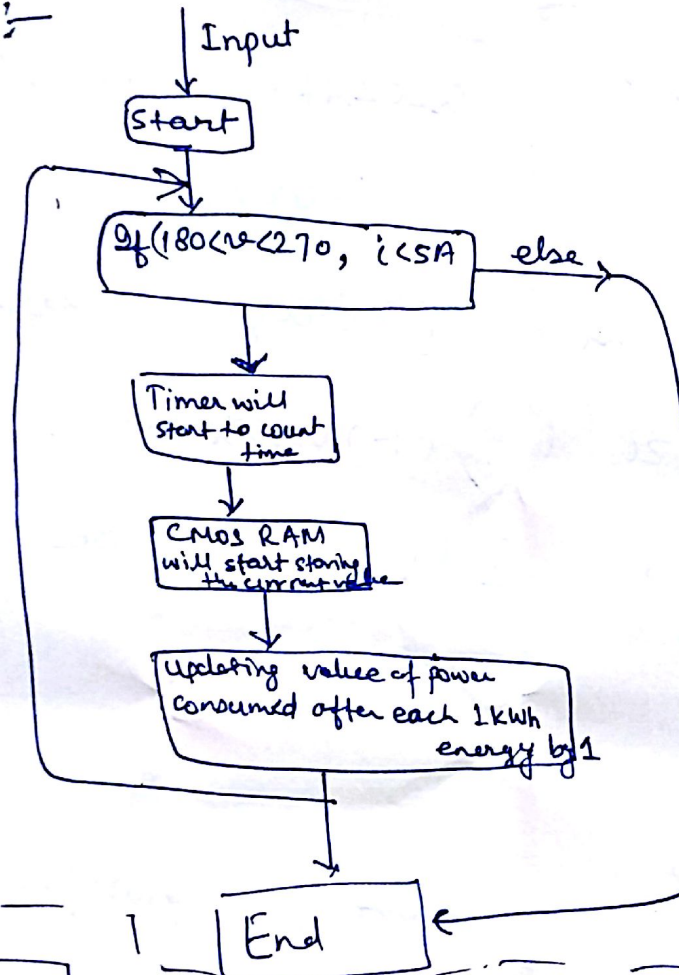 Input
Start
If(180<v<270, i<5A
else
Timer will
start to count
time
CMOS RAM
will start storing
the current value
updating value of power
consumed after each 1kWh
energy by 1
End